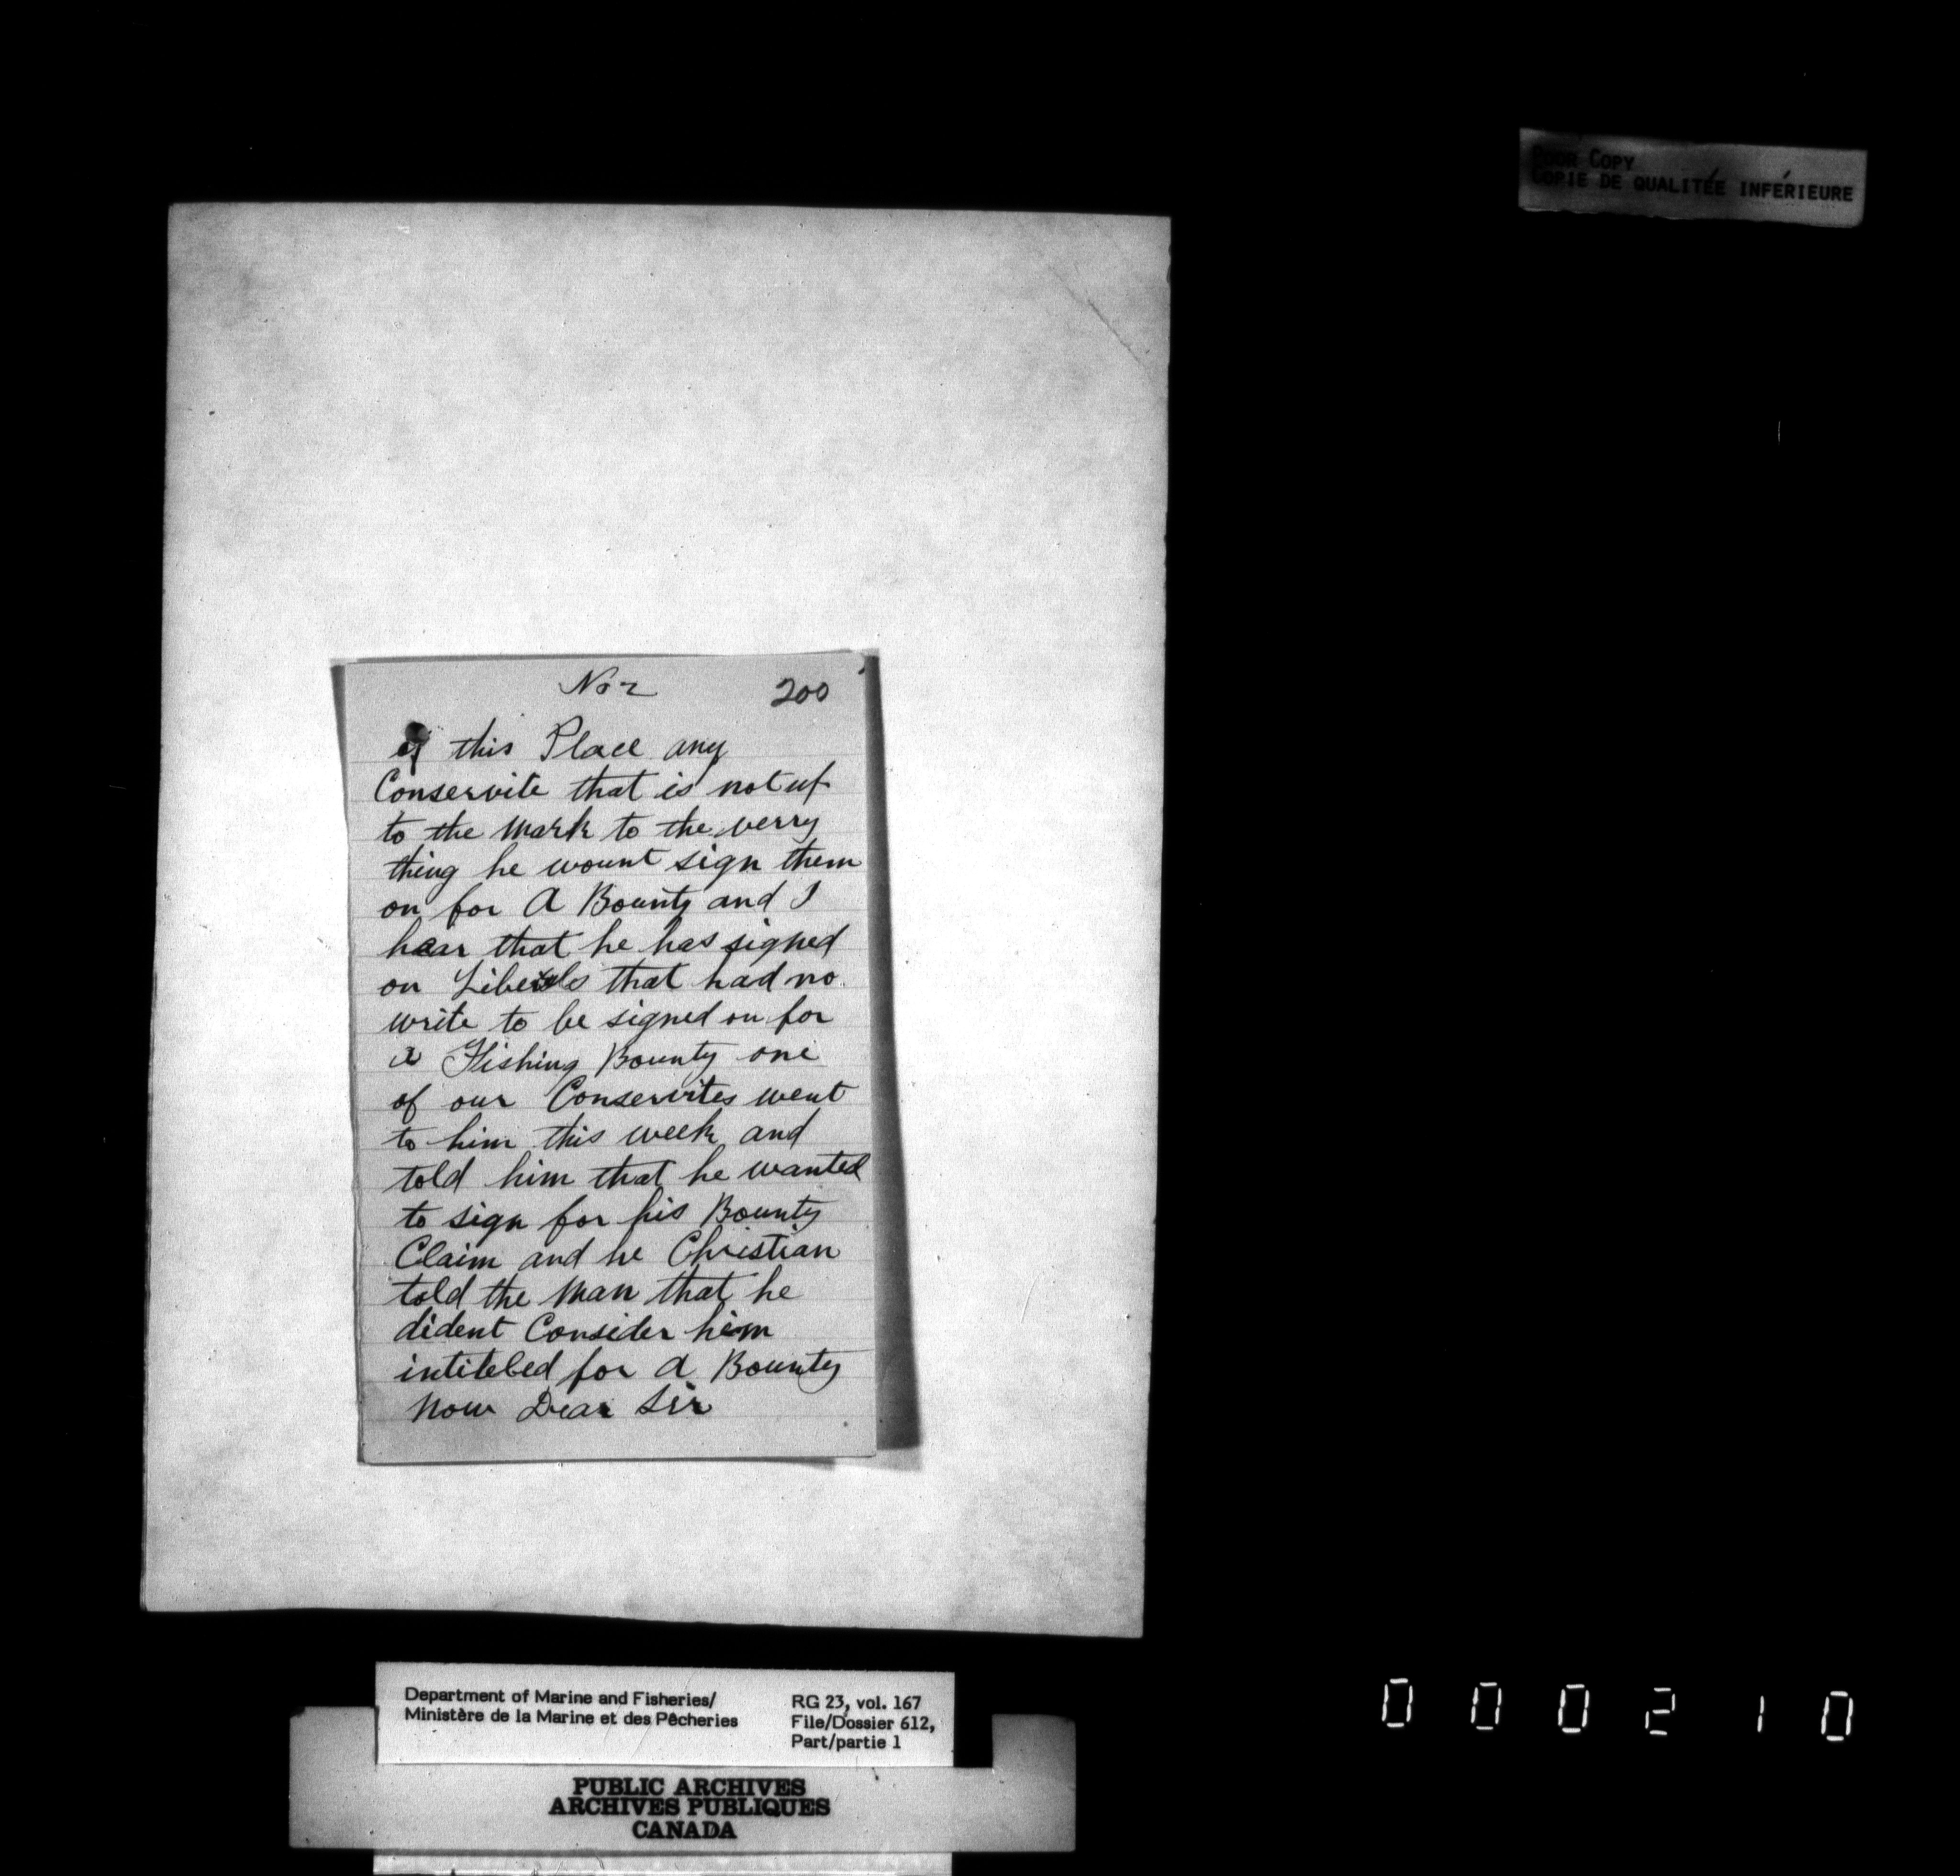 POOR COPY
COPIE DE QUALITÉE INFÉRIEURE
No 2
200
of this Place any
Conservite that is not up
to the Mark to the verry
thing he wount sign them
on for A Bounty and I
hear that he has signed
on Liberals that had no
write to be signed on for
a Fishing Bounty one
of our Conservites went
to him this week and
told him that he wanted
to sign for his Bounty
Claim and he Christian
told the Man that he
dident Consider him
intitebed for a Bounty
Now Dear Sir
Department of Marine and Fisheries/
Ministère de la Marine et des Pêcheries
RG 23, vol. 167
File/Dossier 612,
Part/partie 1
PUBLIC ARCHIVES
ARCHIVES PUBLIQUES
CANADA
000210